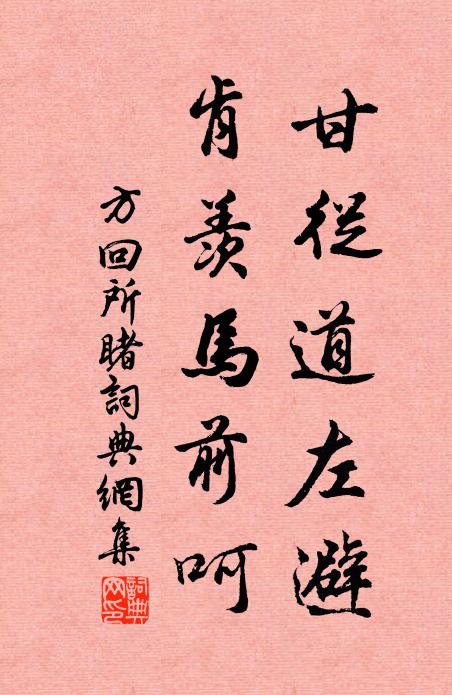 甘從道左避
肯羨馬前呵
方回所睹詞典網集
詞典
网印